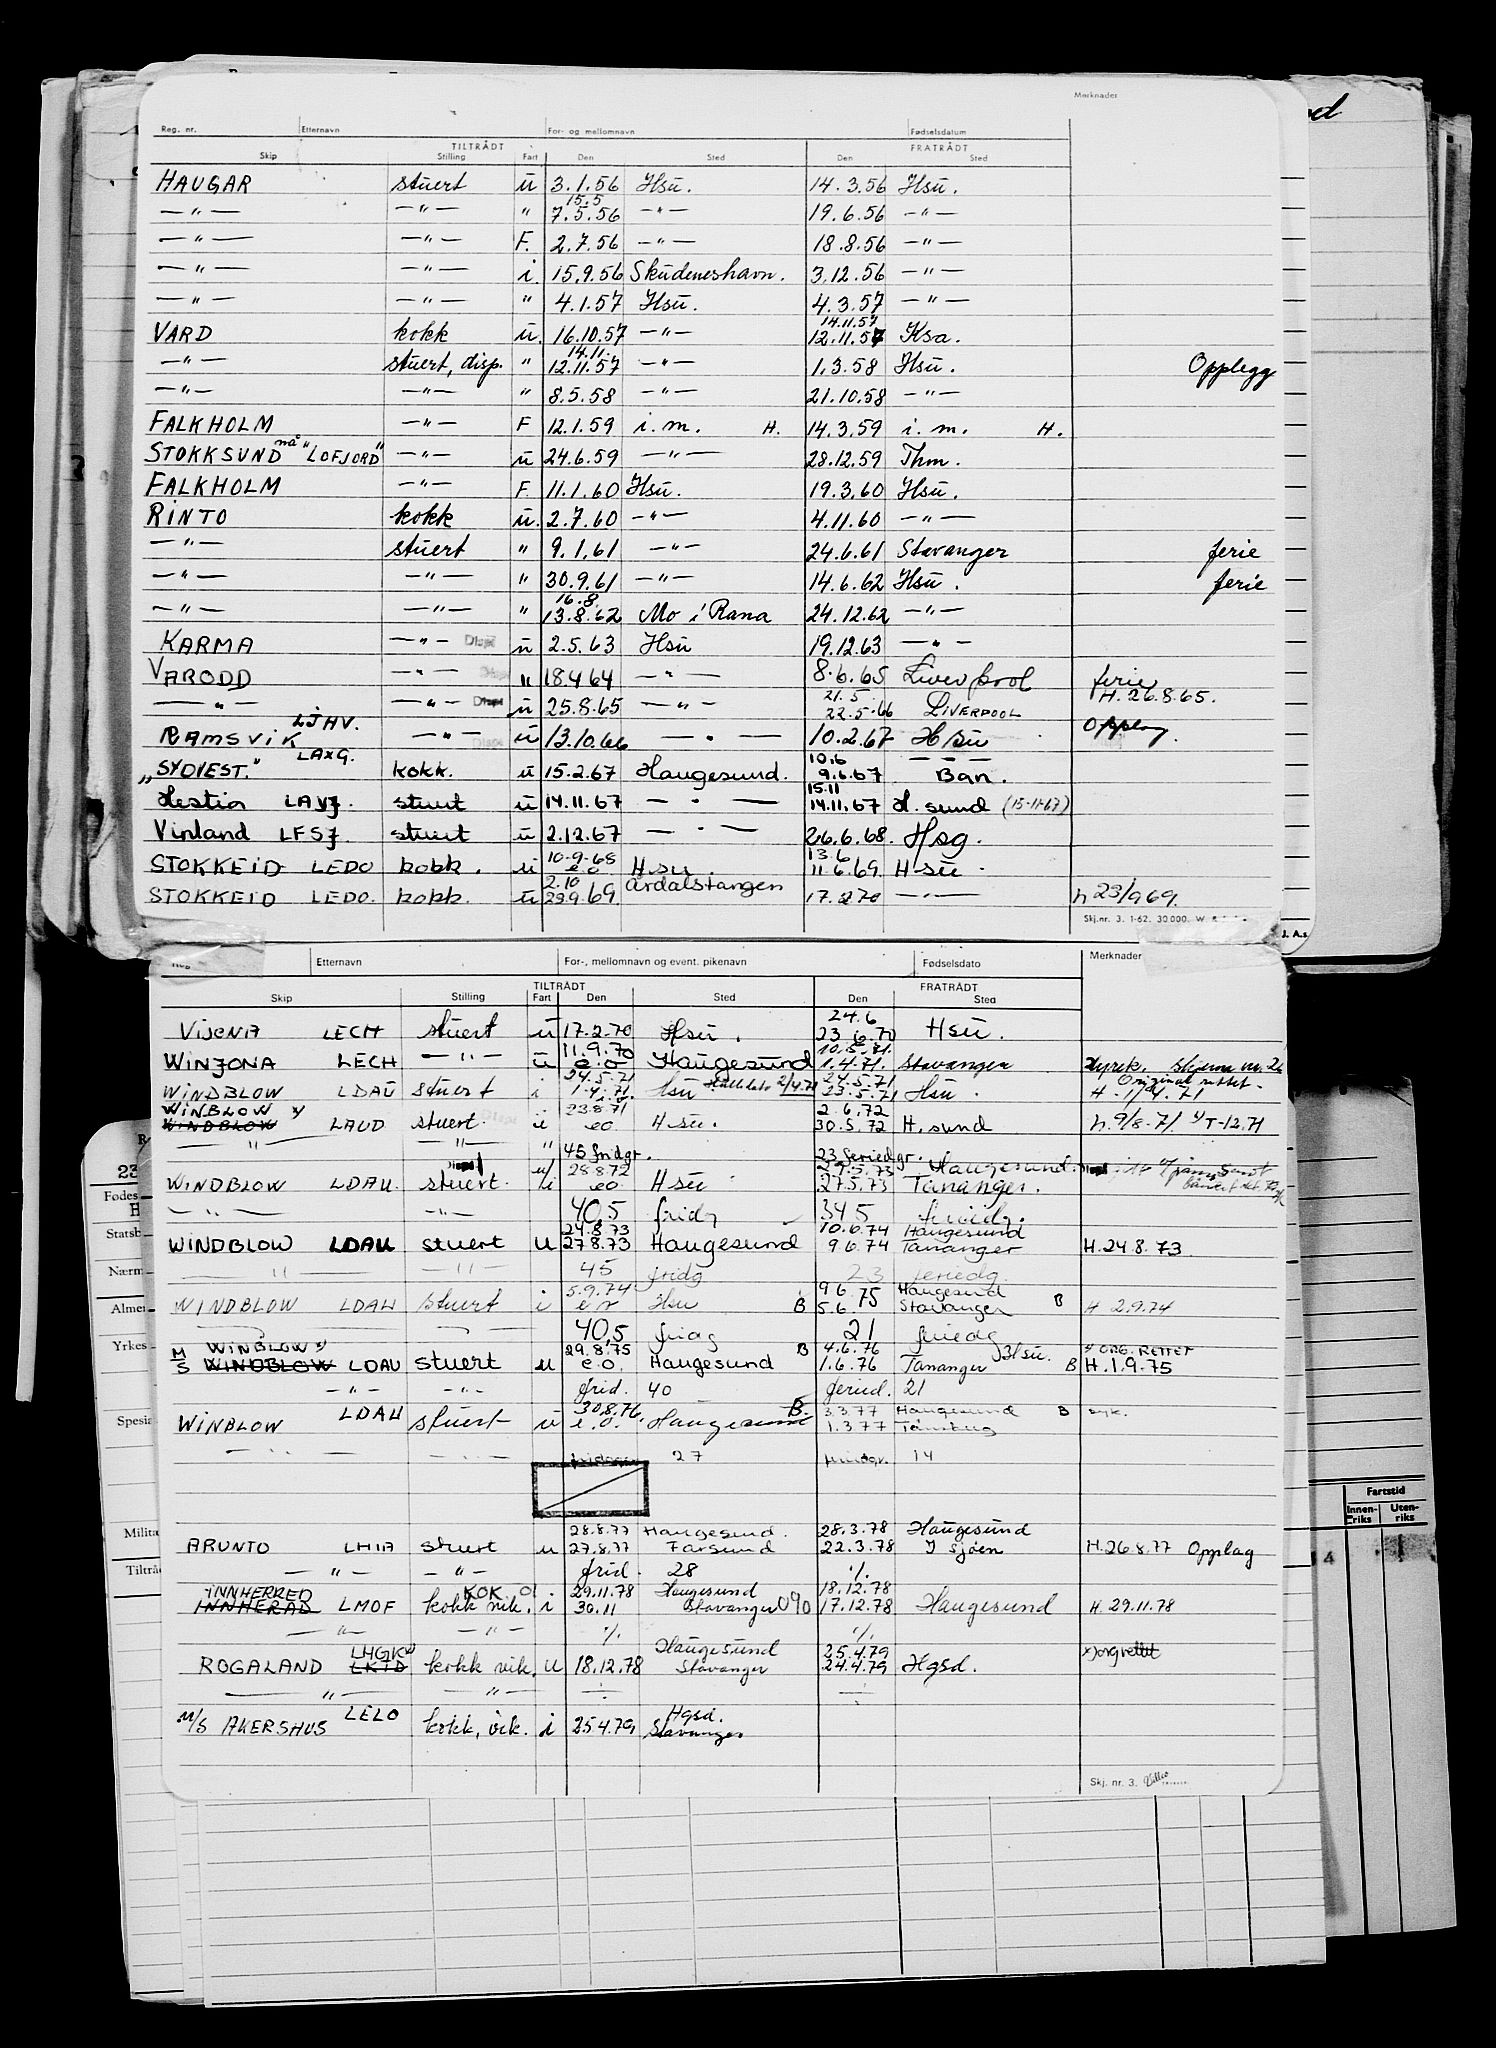 Merknader
Reg. nr. Etternavn For- og mellomnavn Fødselsdatum
TILTRÅDT FRATRÅDT
Skip Stilling Fart Den Sted Den Sted
HAUGAR stuert u 3.1.56 Hsu. 14.3.56 Hsu.
15.5
—"— —"— " 7.5.56 —"— 19.6.56 —"—
—"— —"— F. 2.7.56 —"— 18.8.56 —"—
—"— —"— i. 15.9.56 Skudeneshavn. 3.12.56 —"—
—"— —"— " 4.1.57 Hsu. 4.3.57 —"—
14.11.57
VARD kokk u. 16.10.57 —"— 12.11.57 Ksa.
14.11.
—"— stuert, disp. " 12.11.57 —"— 1.3.58 Hsu. Opplegg
—"— —"— " 8.5.58 —"— 21.10.58 —"—
FALKHOLM —"— F 12.1.59 i.m. H. 14.3.59 i.m. H.
STOKKSUND nå "LOFJORD" —"— u 24.6.59 —"— 28.12.59 Thm.
FALKHOLM —"— F. 11.1.60 Hsu. 19.3.60 Hsu.
RINTO kokk u. 2.7.60 —"— 4.11.60 —"—
—"— stuert " 9.1.61 —"— 24.6.61 Stavanger ferie
—"— —"— " 30.9.61 —"— 14.6.62 Hsu. ferie
16.8.
—"— —"— " 13.8.62 Mo i Rana 24.12.62 —"—
KARMA —"— Disp u 2.5.63 Hsu 19.12.63 —"—
VARODD —"— Disp " 18464 —"— 8.6.65 Liverpool ferie
21.5 H. 26.8.65.
—"— —"— Disp u 25.8.65 —"— 22.5.66 LIVERPOOL
LJHV.
RAMSVIK —"— Disp u 13.10.66 —"— 10.2.67 Hsu Opplag
LAXG. 10.6 — — —
"SYDVEST." kokk. u 15.2.67 Haugesund. 9.6.67 Ban.
15.11
Hestia LAVJ. stuert u 14.11.67 — " — 14.11.67 H. sund (15-11-67)
Vinland LFSJ. stuert u 2.12.67 — " — 26.6.68. Hsg.
10.9.68 13.6
STOKKEID LEDO kokk. u e.o Hsu. 11.6.69 Hsu.
2.10 Årdalstangen
STOKKEID LEDO. kokk. u 29.9.69 17.2.70 —"— h 23/9 69.
Skj.nr. 3. 1-62. 30 000. W.
J. A.s
Etternavn For-, mellomnavn og event. pikenavn Fødselsdato Merknader
TILTRÅDT FRATRÅDT
Skip Stilling Fart Den Sted Den Sted
24.6
VIJONA LECH stuert u 17.2.70 Hsu. 23.6.70 Hsu.
11.9.70 10.5.71.
WINJONA LECH —"— u e.o Haugesund 1.4.71. Stavanger
24.5.71 2/4.71 24.5.71 Original rettet.
WINDBLOW LDAU stuert i 1.4.71. Hsu 23.5.71 Hsu. H. 1/4.71
WINBLOW 23.8.71 2.6.72
WINDBLOW LAUD stuert. u eo. Hsu. 30.5.72 H.sund h.9/8-71. T-12.71
—"— —"— " 45 fridgr. 23 feriedgr.
28.8.72 29.5.73 Haugesund.
WINDBLOW LDAU. stuert. u eo. Hsu 27.5.73 Tananger.
—"— —"— 40,5 fridg 34 5 feriedg.
24.8.73 10.6.74 Haugesund
WINDBLOW LDAU stuert u 27.8.73 Haugesund 9 6.74 Tananger H.24.8.73.
—"— —"— 45 fridg 23 feriedg.
5.9.74 9 6 Haugesund
WINDBLOW LDAU stuert i e o Hsu B 5.6. 75 Stavanger B H 2.9.74
40,5 fridg 21 feriedg
WINBLOW 29.8.75 B 4.6.76 Hsu. ORG. RETTET
M/S WINDBLOW LDAU stuert u e.o. Haugesund 1.6.76 Tananger B H.1.9.75
—"— —"— frid. 40 feried. 21
LDAU 30.8.76. B. 3.3.77 Haugesund B syk.
WINBLOW stuert u e.o. Haugesund 1.3.77 Tønsberg
—"— —"— fridager 27 feriedgr. 14
28.8.77 Haugesund. 28.3.78 Haugesund
ARUNTO LHIA stuert u 27.8.77 Farsund 22.3.78 I sjøen H.26.8.77 Opplag
—"— —"— frid. 28 ·/.
INNHERRED KOK 29.11.78 Haugesund 18.12.78
INNHERAD LMOF kokk vik. i 30.11 Stavanger 090 17.12.78 Haugesund H. 29.11.78
—"— —"— ·/. ·/.
LHGK Haugesund 25.4.79 x) org rettet
ROGALAND LKTD kokk vik. u 18.12.78 Stavanger 24.4.79 Hgsd.
—"— —"— ÷ ÷
LELO Hgsd.
M/S AKERSHUS kokk, vik. i 25.4.79 Stavanger
Skj. nr. 3.
23
Fødes
Statsb
Nærm
Almen
Yrkes
Spesia
Milita
Tiltråd
Fartstid
Innenriks Utenriks
4